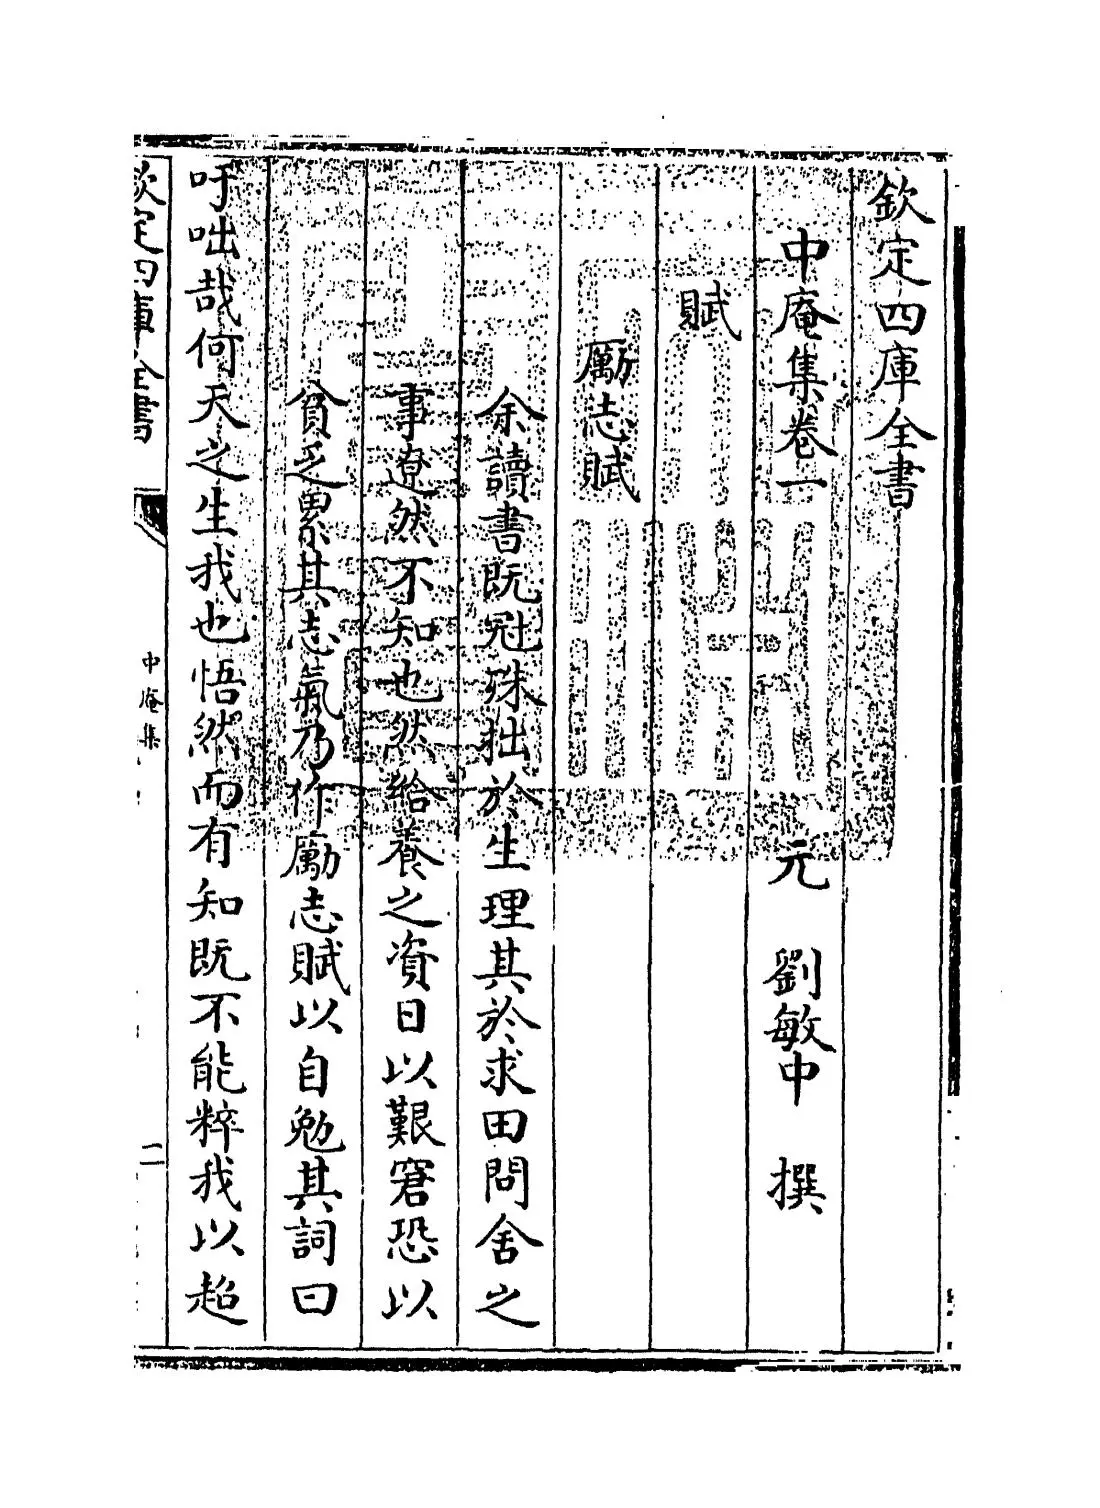 欽定四庫全書
中庵集卷一
元 劉敏中 撰
賦
厲志賦
余讀書既冠殊拙於生理其於求田問舍之
事遼然不知也然給養之資日以艱窘恐以
貧乏累其志氣乃作勵志賦以自勉其詞曰
吁咄哉何天之生我也悟然而有知既不能粹我以超
欽定四庫全書
中庵集
二